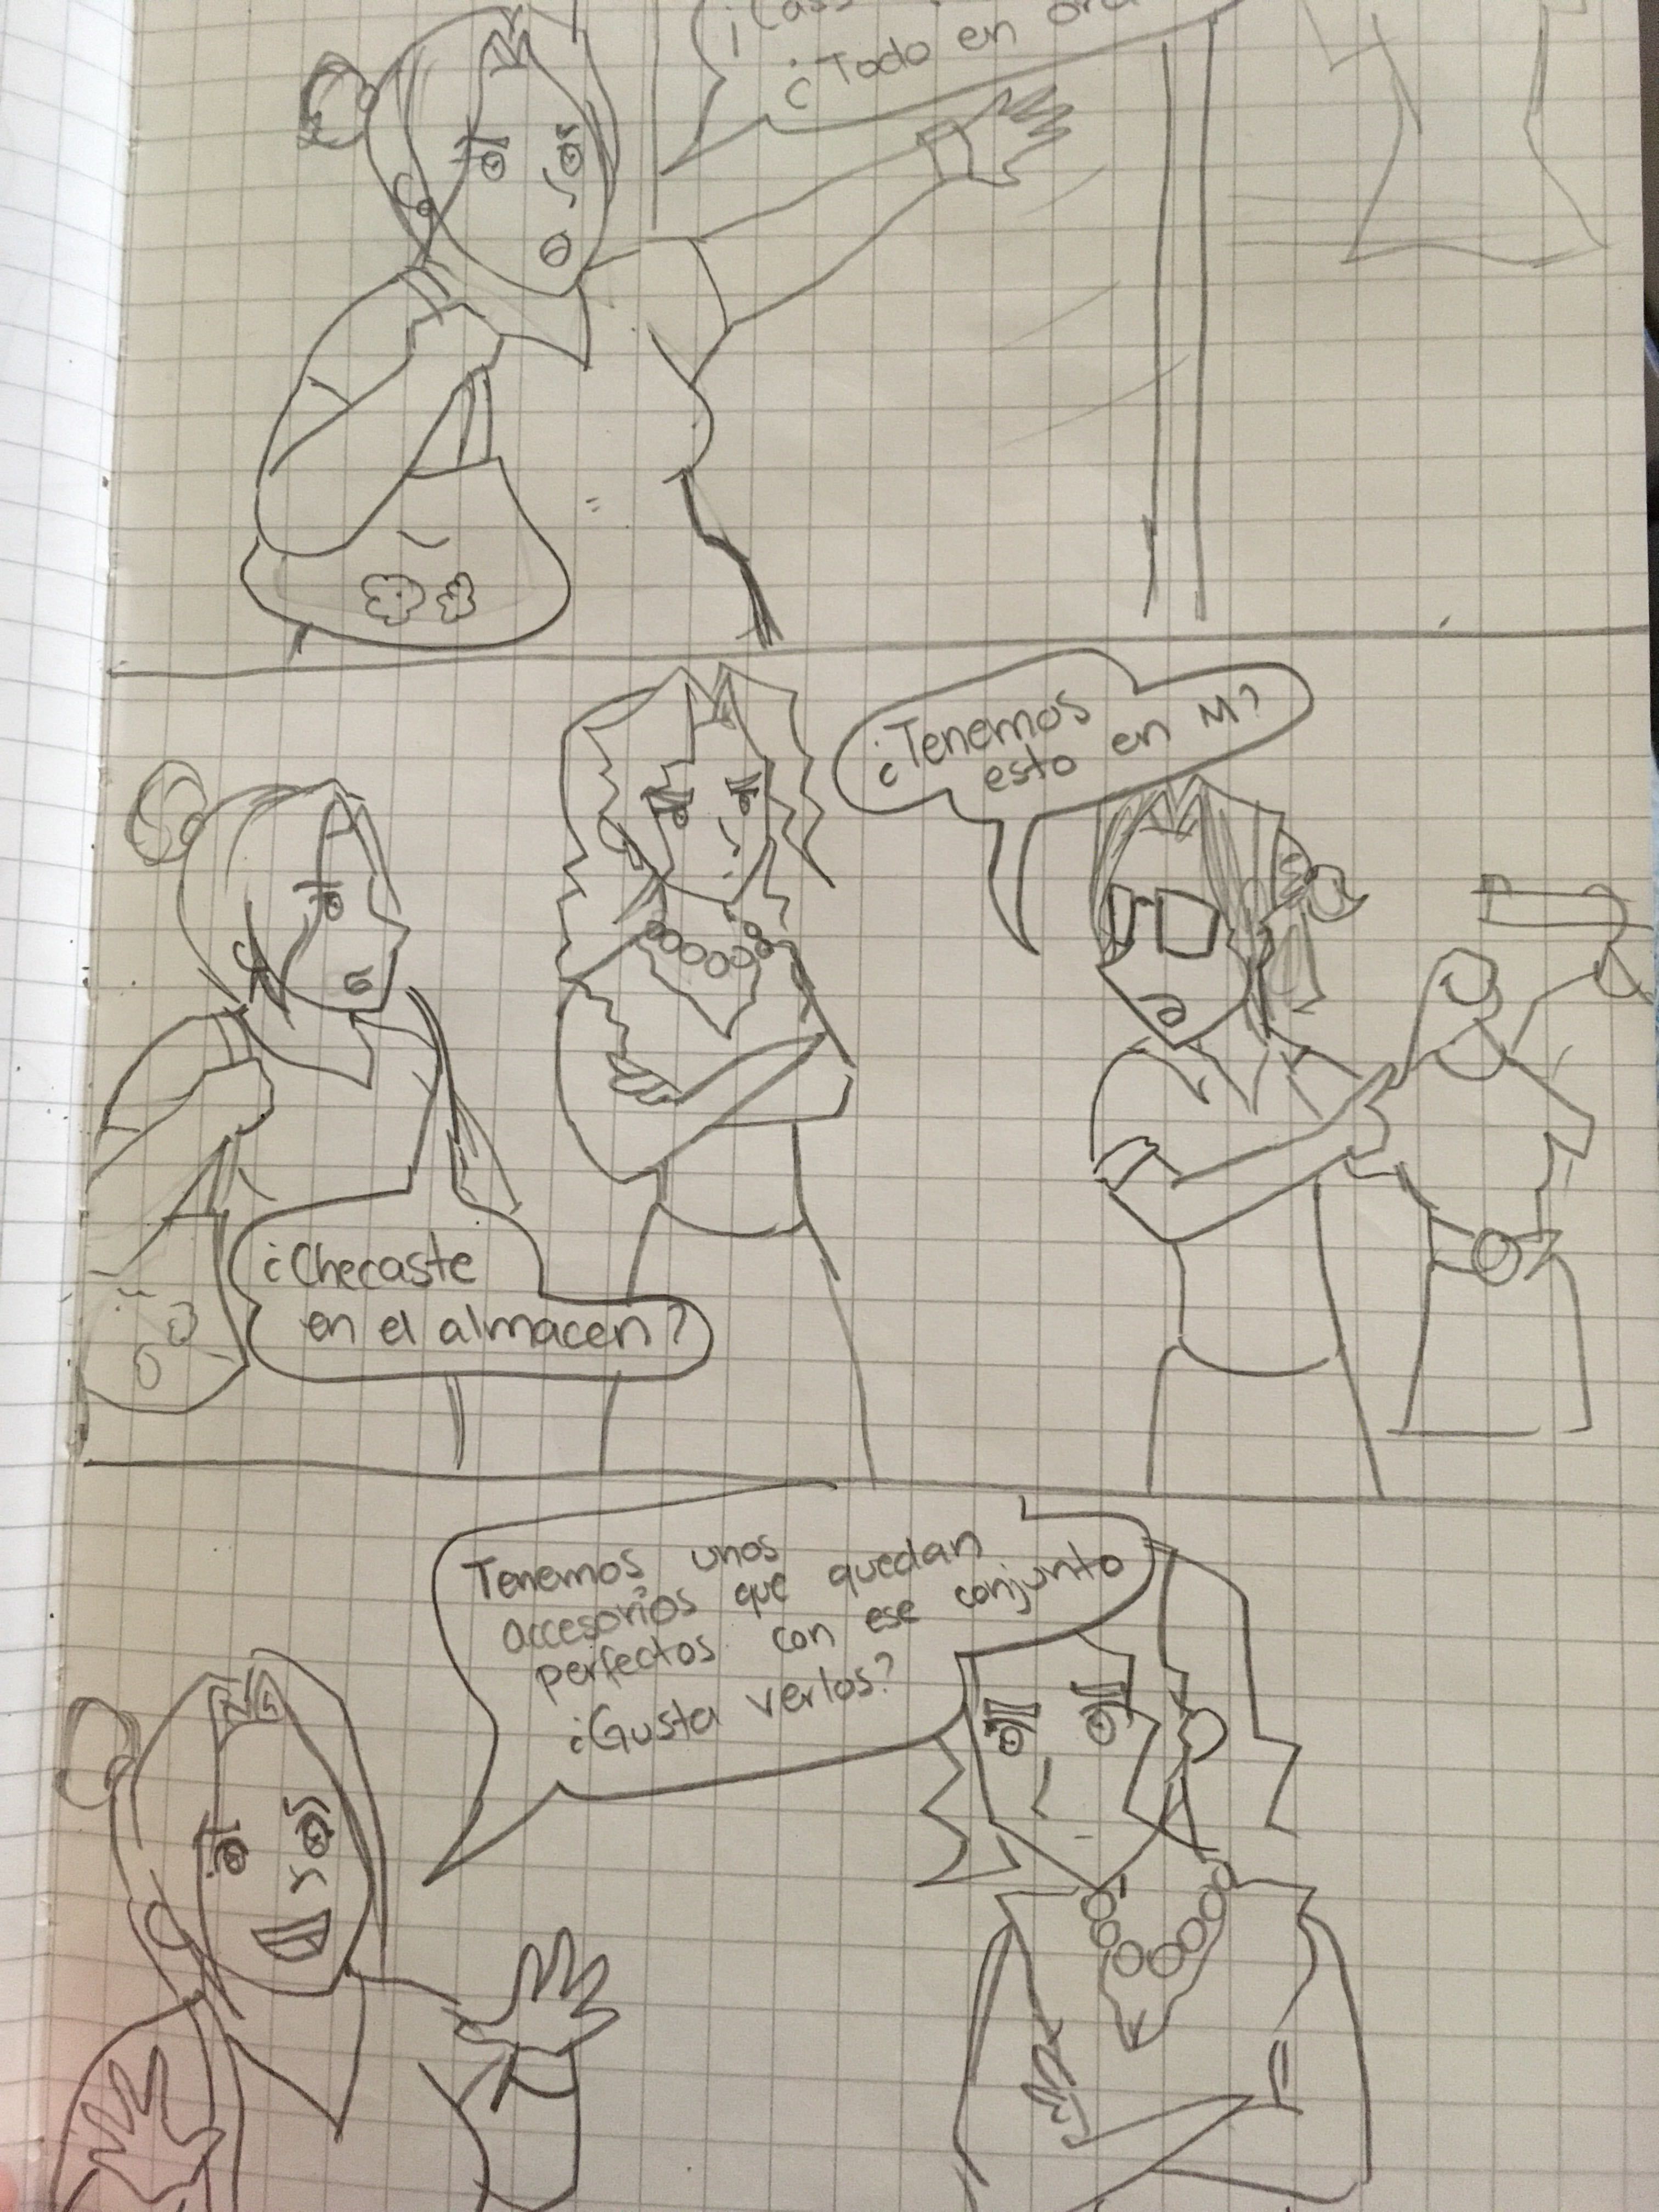 ¿Todo en
¿Tenemos
esto en M?
¿Checaste
en el almacen?
Tenemos unos
accesorios que quedan
perfectos con ese conjunto
¿Gusta verlos?